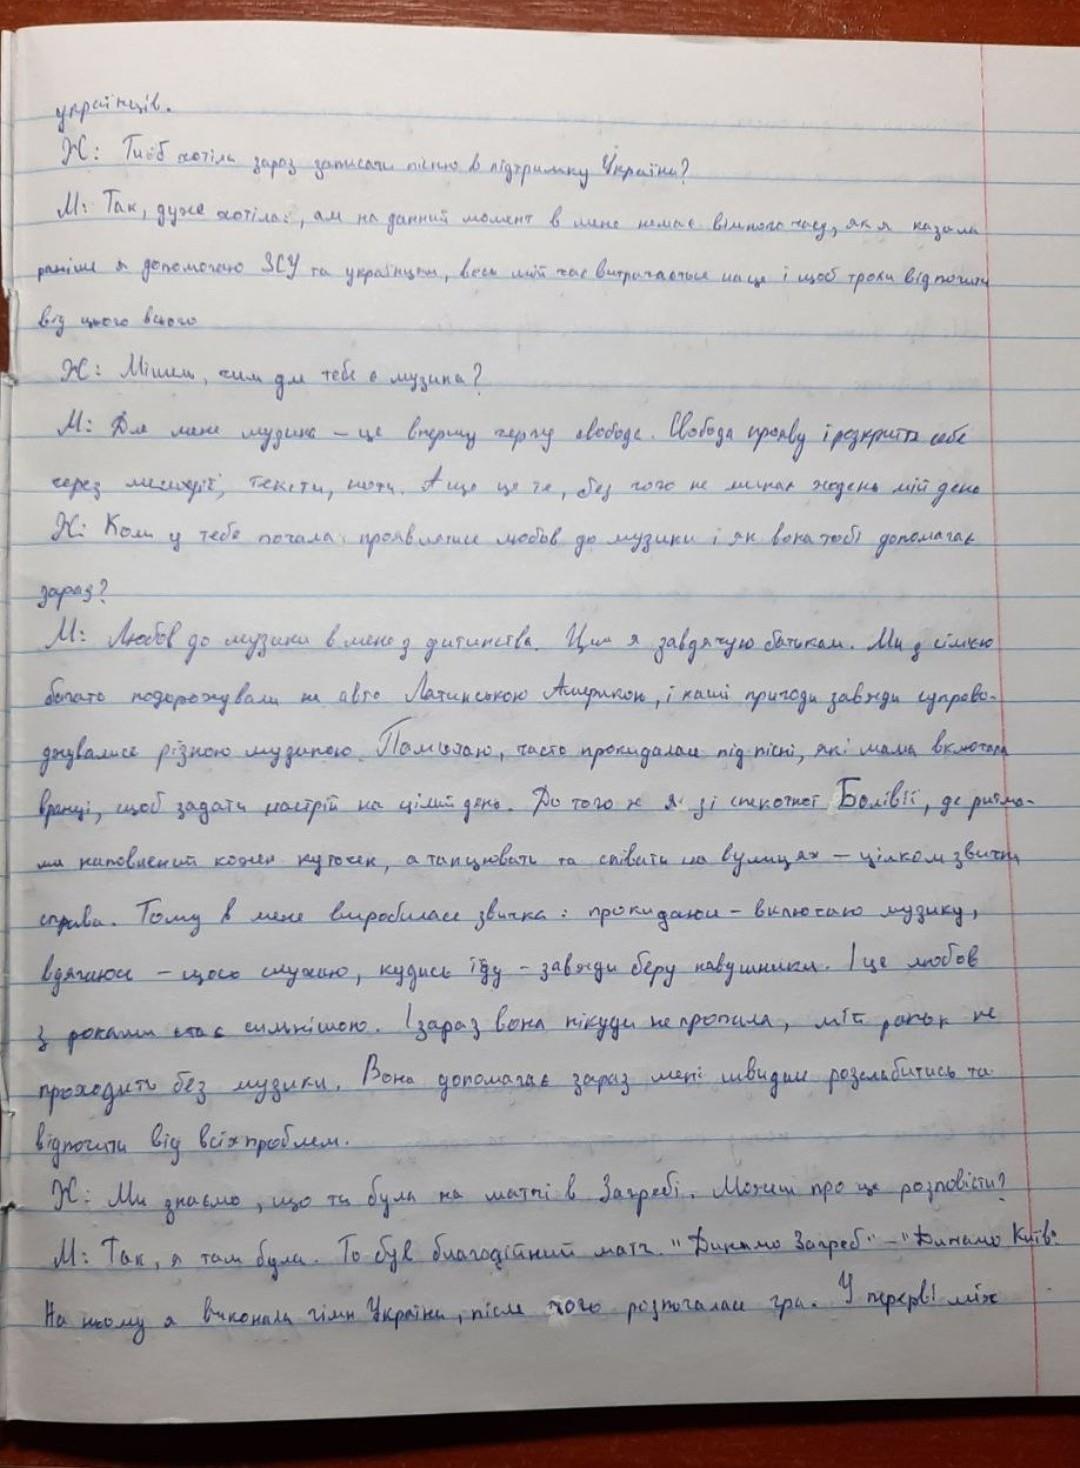 українців.
Ж: Ти б хотіла зараз записати пісню в підтримку України?
М: Так, дуже хотіла, ал на данний момент в мене немає вільного часу, як я казала
раніше я допомогаю ЗСУ та українцям, весь мій час витрачається на це і щоб трохи відпочити
від цього всього
Ж: Мішель, чим для тебе є музика?
М: Для мене музика – це впершу чергу свобода. Свобода прояву і розкриття себе
через мелодії, тексти, ноти. А ще це те, без чого не минає жоден мій день
Ж: Коли у тебе почала проявлятися любов до музики і як вона тобі допомагає
зараз?
М: Любов до музики в мене з дитинства. Цим я завдячую батькам. Ми з сім'єю
багато подорожували на авто Латинською Америкою, і наші пригоди завжди супрово-
джувалися різною музикою. Пам'ятаю, часто прокидалася під пісні, які мама включала
вранці, щоб задати настрій на цілий день. До того ж я зі спекотної Болівії, де ритма-
ми наповнений кожен куточок, а танцювать та співати на вулицях – цілком звична
справа. Тому в мене виробилася звичка: прокидаюся – включаю музику,
вдягаюся – щось слухаю, кудись їду – завжди беру навушники. І ця любов
з роками стає сильнішою. І зараз вона нікуди не пропала, мій ранок не
проходить без музики. Вона допомагає зараз мені швидше розслабитись та
відпочити від всіх проблем.
Ж: Ми знаємо, що ти була на матчі в Загребі. Можеш про це розповісти?
М: Так, я там була. То був благодійний матч "Динамо Загреб" – "Динамо Київ".
На ньому я виконала гімн України, після чого розпочалася гра. У перерві між